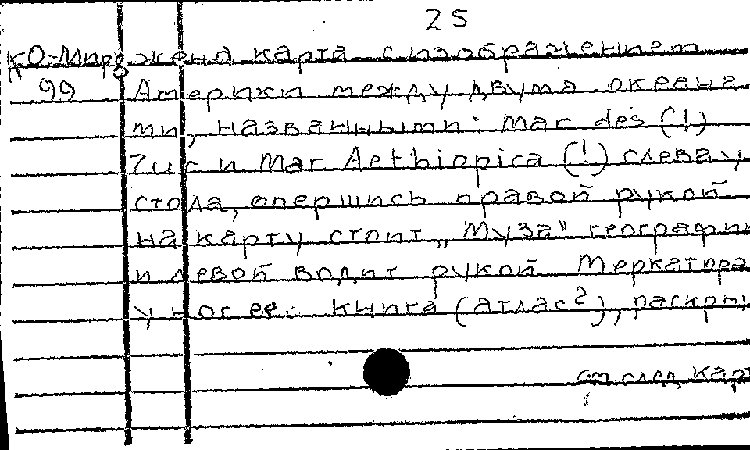 25
КО-Мир жена карта с изображением
99 Америки между двумя океана
ми, названными: Mar des (!)
Zur и Mar Aethiopica (!) слева у
стола, опершись правой рукой
на карту стоит "Муза" географии
и левой водит рукой Меркатора
у ног ее: книга (атлас?), раскры
см след карт